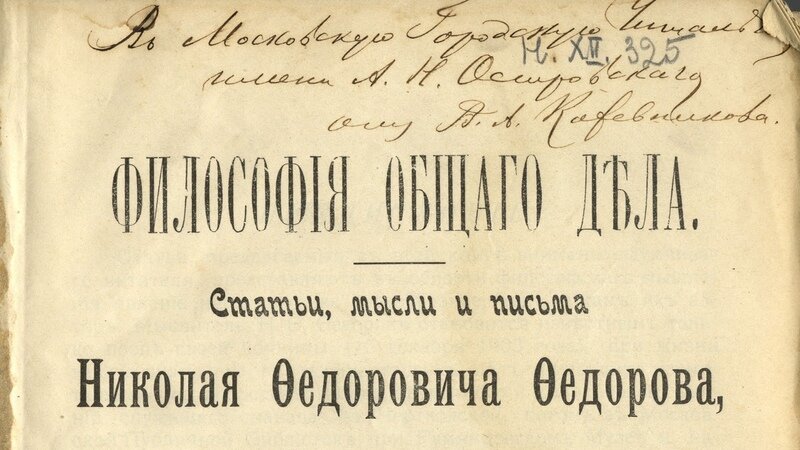 Въ Московскую Городскую Читальню
Н. XVI. 325
имени А. Н. Островскаго
отъ В. А. Кожевникова.
ФИЛОСОФІЯ ОБЩАГО ДѢЛА.
Статьи, мысли и письма
Николая Ѳедоровича Ѳедорова,